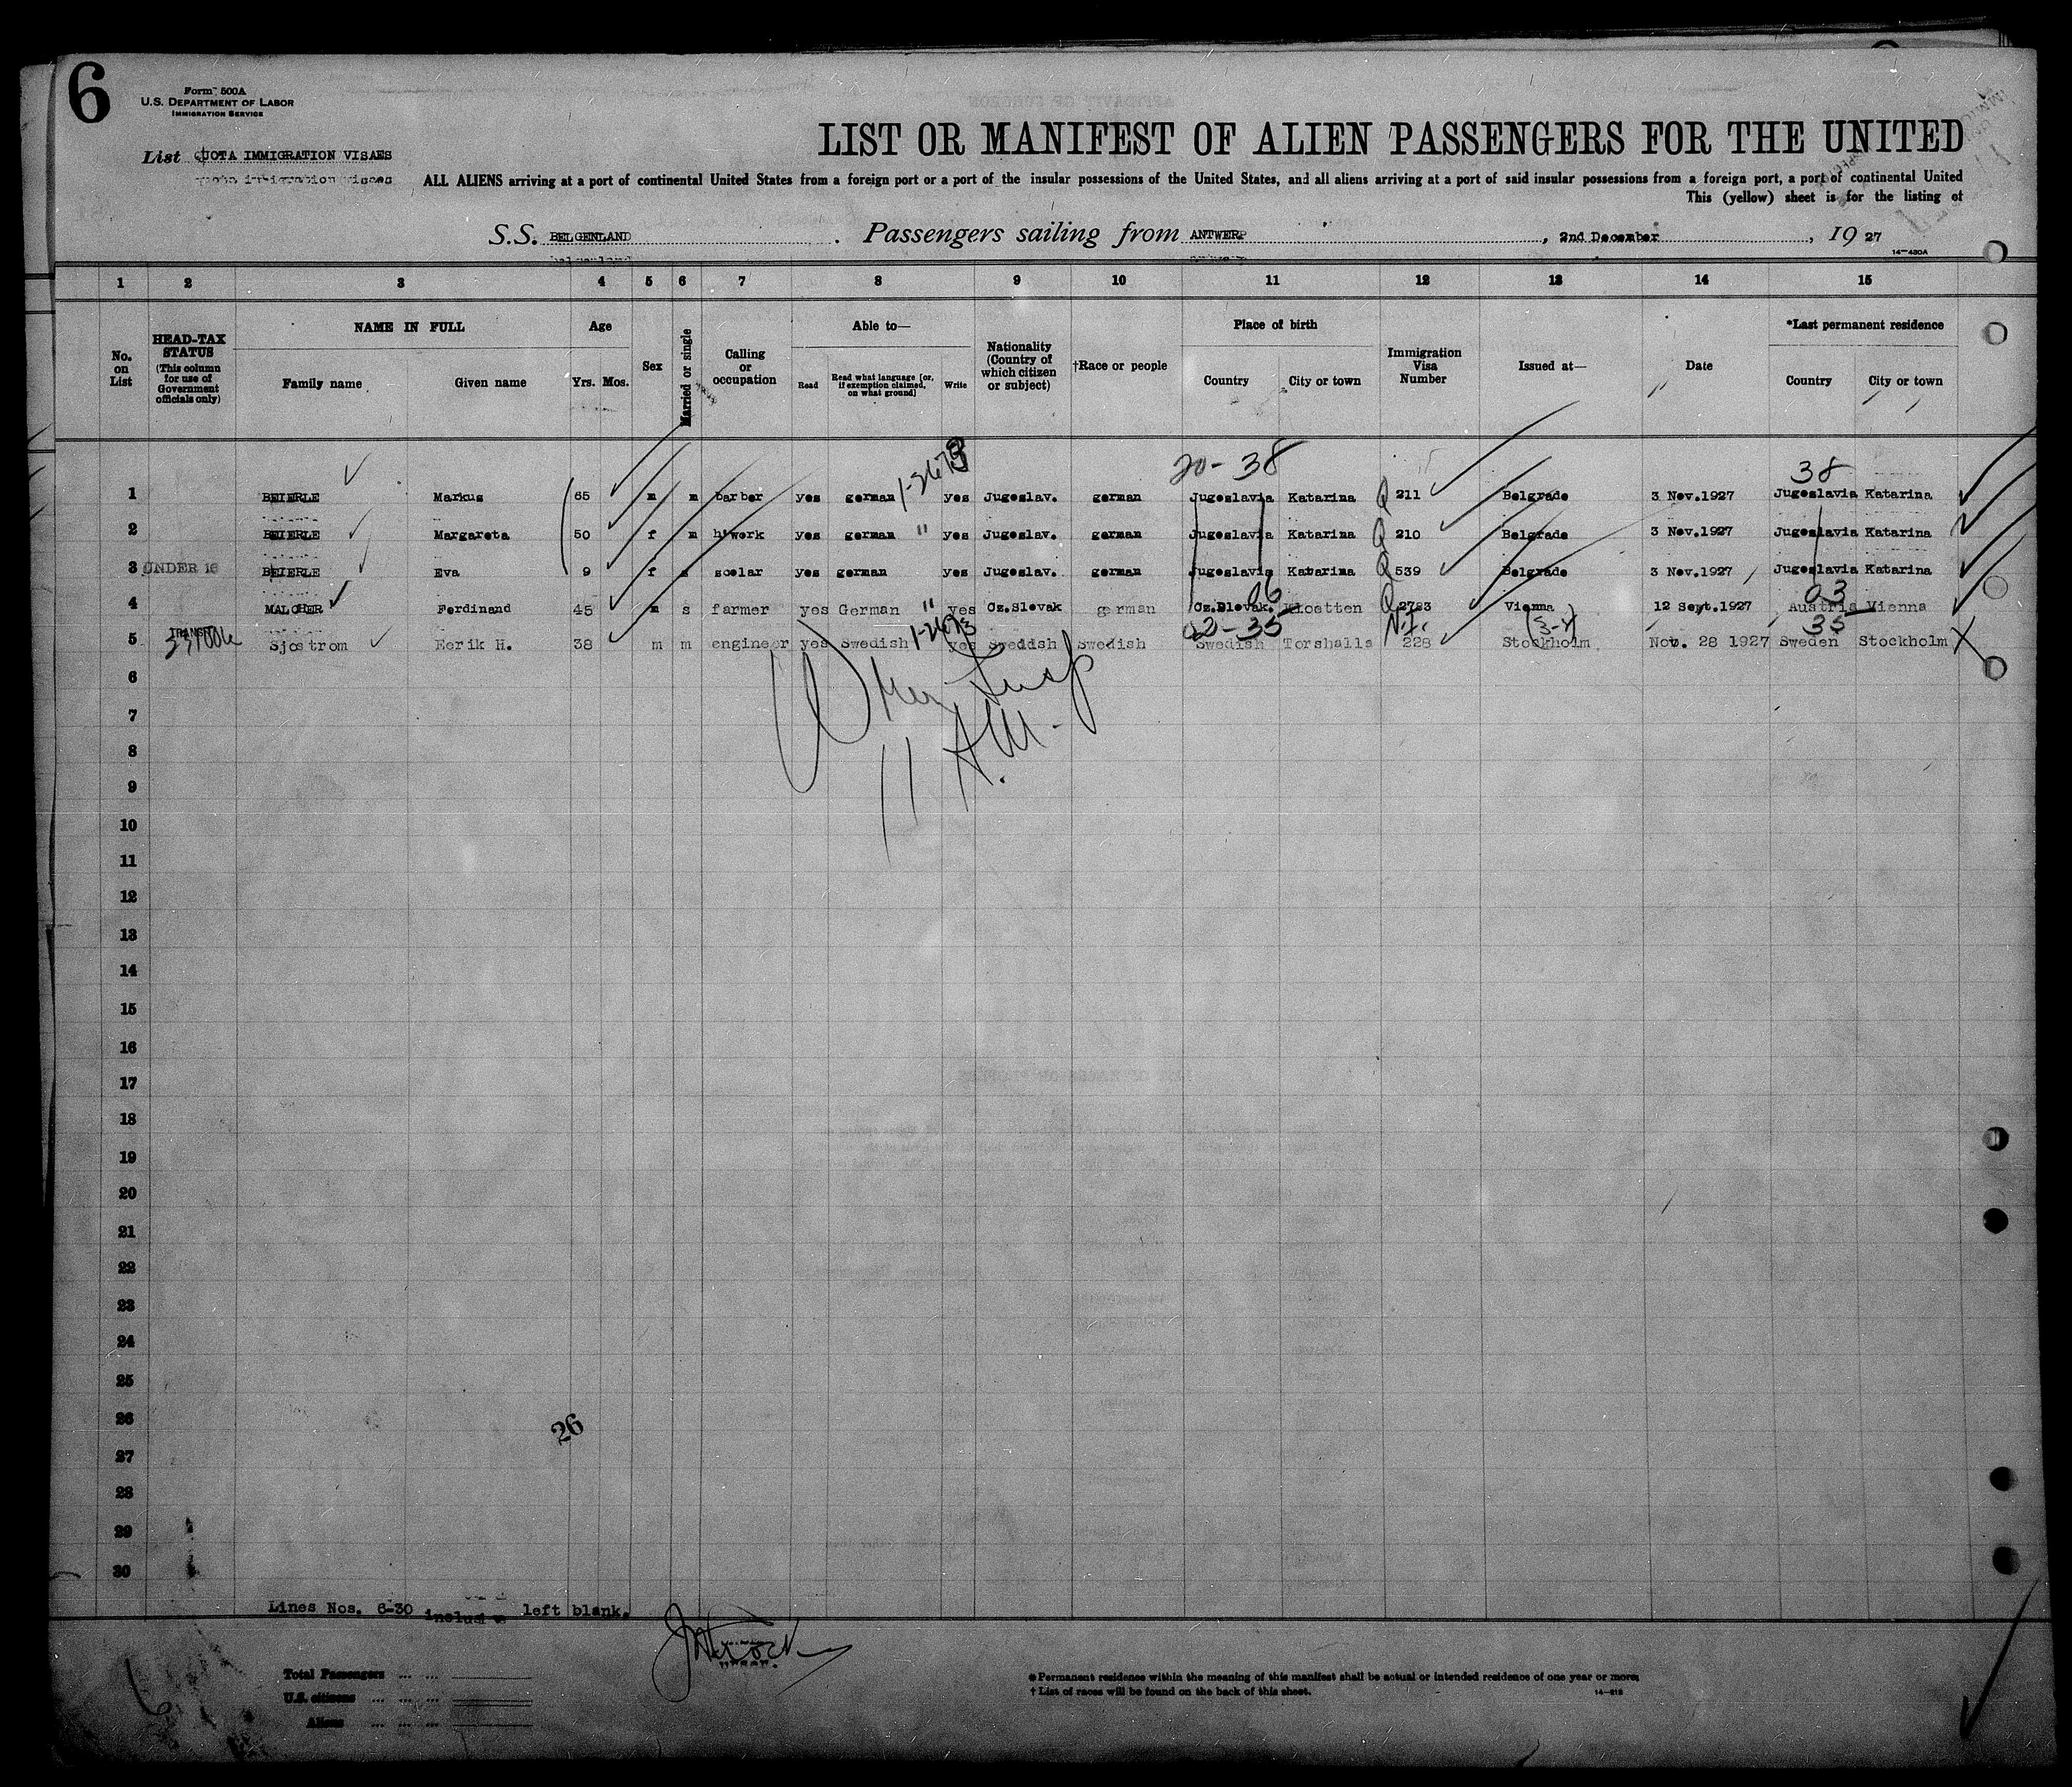 6
Form 500A
U.S. DEPARTMENT OF LABOR
IMMIGRATION SERVICE
List QUOTA IMMIGRATION VISAES
LIST OR MANIFEST OF ALIEN PASSENGERS FOR THE UNITED
ALL ALIENS arriving at a port of continental United States from a foreign port or a port of the insular possessions of the United States, and all aliens arriving at a port of said insular possessions from a foreign port, a port of continental United
This (yellow) sheet is for the listing of
S.S. BELGENLAND. Passengers sailing from ANTWERP, 2nd December, 19 27
14—430A
1 2 3 4 5 6 7 8 9 10 11 12 13 14 15
No. on List
HEAD-TAX STATUS (This column for use of Government officials only)
NAME IN FULL
Family name Given name
Age
Yrs. Mos.
Sex
Married or single
Calling or occupation
Able to—
Read Read what language [or, if exemption claimed, on what ground] Write
Nationality (Country of which citizen or subject)
†Race or people
Place of birth
Country City or town
Immigration Visa Number
Issued at—
Date
*Last permanent residence
Country City or town
20-38 38
1 BEIERLE Markus 65 m m barber yes german yes Jugoslav. german Jugoslavia Katarina Q 211 Belgrade 3 Nov.1927 Jugoslavia Katarina
2 BEIERLE Margareta 50 f m h'work yes german " yes Jugoslav. german Jugoslavia Katarina Q 210 Belgrade 3 Nov.1927 Jugoslavia Katarina
3 UNDER 16 BEIERLE Eva 9 f s scolar yes german yes Jugoslav. german Jugoslavia Katarina Q 539 Belgrade 3 Nov.1927 Jugoslavia Katarina
06 03
4 MALCHER Ferdinand 45 m s farmer yes German " yes Cz.Slovak german Cz.Slovak. Q 2783 Vienna 12 Sept.1927 Austria Vienna
35
5 TRANSIT Sjostrom Eerik H. 38 m m engineer yes Swedish yes Swedish Swedish Swedish Torshalla N.I. 228 Stockholm Nov. 28 1927 Sweden Stockholm
6
7
11 A.M.
8
9
10
11
12
13
14
15
16
17
18
19
20
21
22
23
24
25
26
26
27
28
29
30
Lines Nos. 6-30 inclusive left blank.
Total Passengers ... ...
U.S. citizens ... ... ...
Aliens ... ... ...
*Permanent residence within the meaning of this manifest shall be actual or intended residence of one year or more.
† List of races will be found on the back of this sheet.